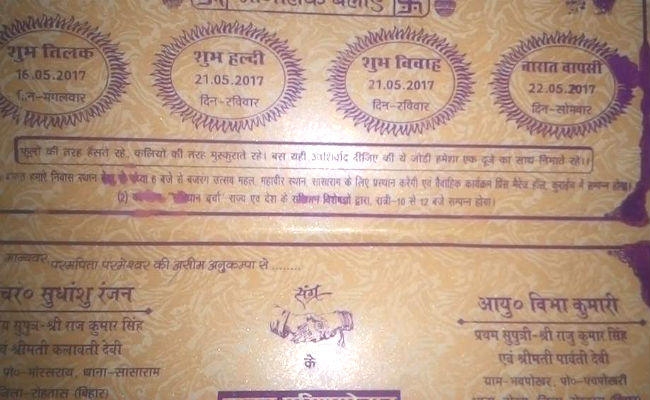 मांगलिक
शुभ तिलक
16.05.2017
दिन-मंगलवार
शुभ हल्दी
21.05.2017
दिन-रविवार
शुभ विवाह
21.05.2017
दिन-रविवार
बारात वापसी
22.05.2017
दिन-सोमवार
फूलों की तरह हँसते रहे, कलियों की तरह मुस्कुराते रहे। बस यही आशिर्वाद दीजिए की ये जोड़ी हमेशा एक दूजे का साथ निभाते रहे।।
बारात हमारे निवास स्थान से संध्या 6 बजे से बजरंग उत्सव महल, महावीर स्थान, सासाराम के लिए प्रस्थान करेगी एवं वैवाहिक कार्यक्रम प्रिंस मैरेज हॉल, कुराईच में सम्पन्न होगा।
(2) चर्चा राज्य एवं देश के विशेषज्ञों द्वारा, रात्री-10 से 12 बजे सम्पन्न होगा।
मान्यवर, परमपिता परमेश्वर की असीम अनुकम्पा से ........
सुधांशु रंजन
सुपुत्र-श्री राज कुमार सिंह
श्रीमती कलावती देवी
पो०-मोरसराय, थाना-सासाराम
जिला-रोहतास (बिहार)
संग
के
आयु० विभा कुमारी
प्रथम सुपुत्री-श्री राजु कुमार सिंह
एवं श्रीमती पार्वती देवी
ग्राम-भवपोखर, पो०-पचपोखरी